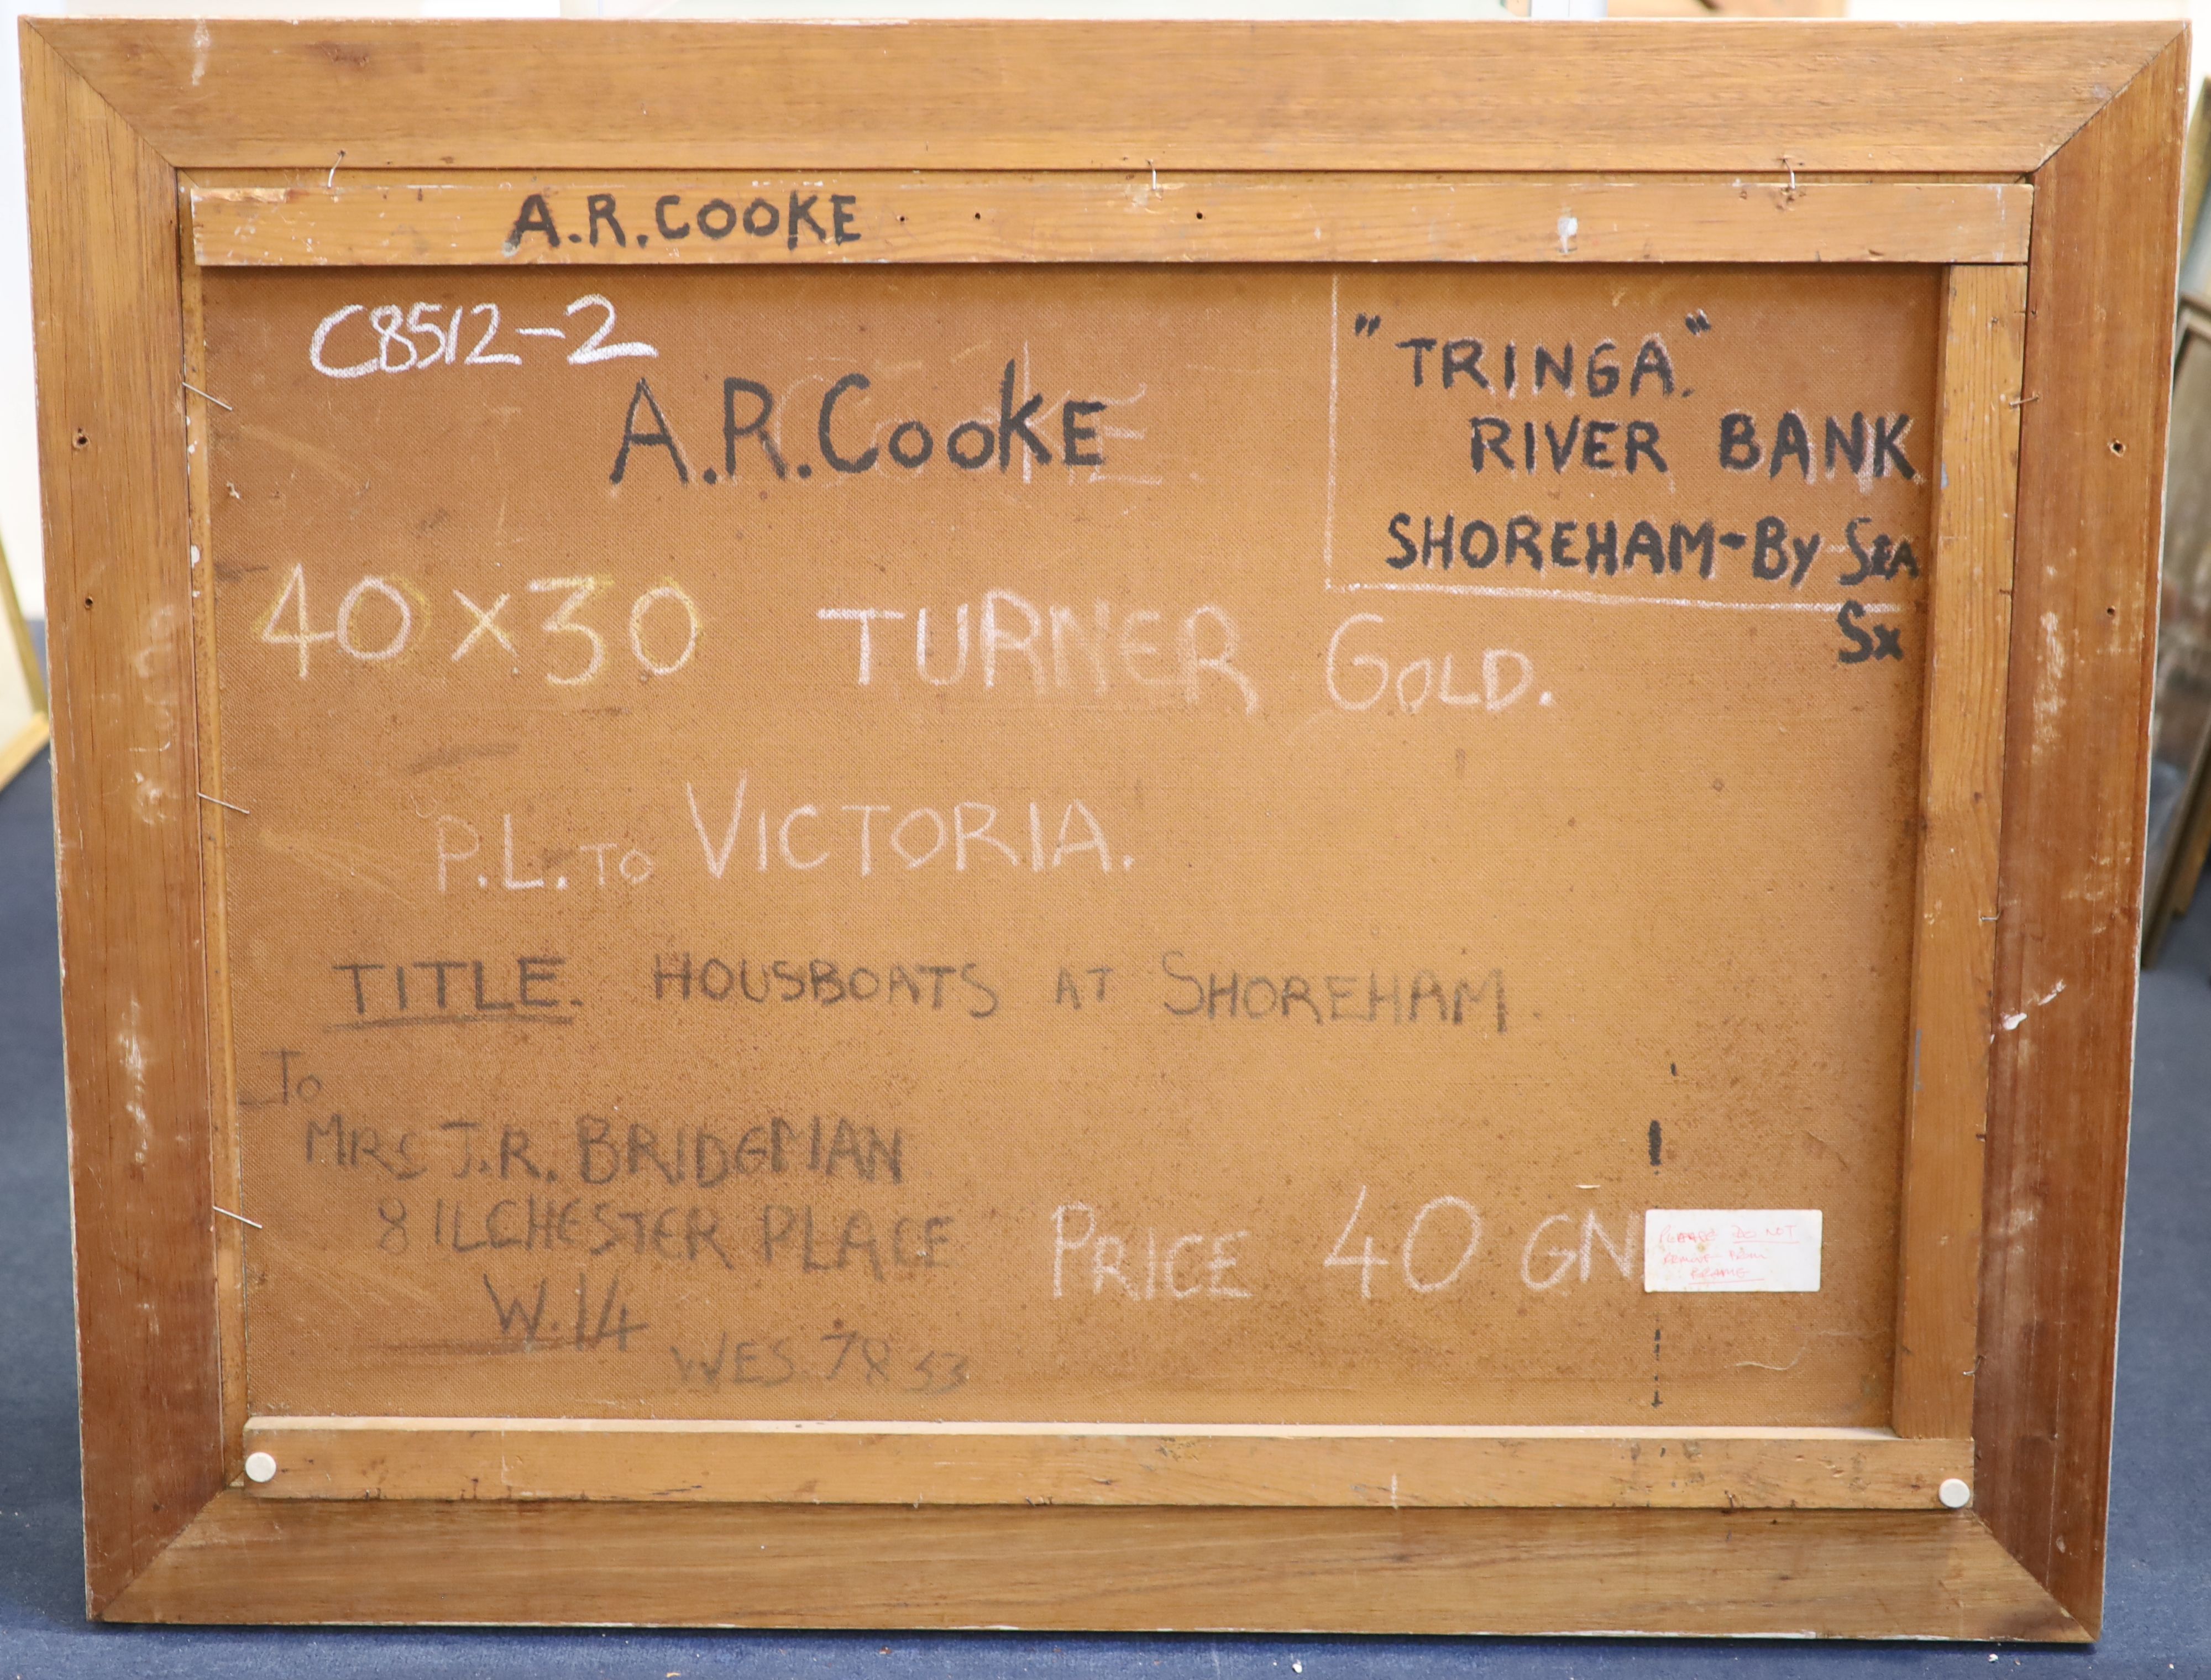 A.R.COOKE
C8512-2
A.R.CooKE
"TRINGA."
RIVER BANK
SHOREHAM-By SEA
Sx
40x30 TURNER GOLD.
P.L. TO VICTORIA.
TITLE. HOUSBOATS AT SHOREHAM.
To
MRS J.R. BRIDGMAN
8 ILCHESTER PLACE
W.14
WES. 7853
PRICE 40 GN
PLEASE DO NOT
REMOVE FROM
FRAME